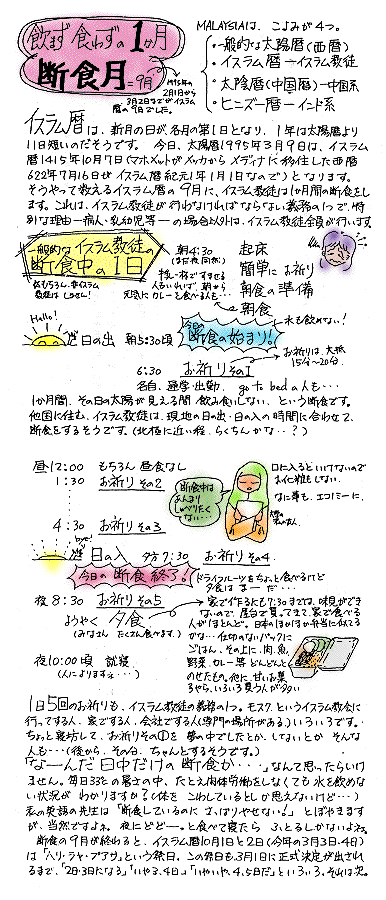 飲まず食わずの1か月
断食月=9月
1995年の
2月1日から
3月2日までがイスラム
暦の9月でした。
MALAYSIAは、こよみが4つ。
・一般的な太陽暦(西暦)
・イスラム暦→イスラム教徒
・太陰暦(中国暦)→中国系
・ヒンズー暦→インド系
イスラム暦は、新月の日が、各月の第1日となり、1年は太陽暦より
11日短いのだそうです。今日、太陽暦1995年3月9日は、イスラム
暦1415年10月7日(マホメットがメッカからメディナに移住した西暦
622年7月16日がイスラム暦紀元1年1月1日なので)となります。
そうやって数えるイスラム暦の9月に、イスラム教徒は1か月間の断食をしま
す。これは、イスラム教徒が行わなければならない義務の1つで、特
別な理由ー病人・乳幼児等ーの場合以外は、イスラム教徒全員が行います。
一般的なイスラム教徒の
断食中の1日
朝4:30
起床
簡単にお祈り
朝食の準備
朝食
元気にカレーを食べる人も…
Hello!
日の出 朝5:30頃
断食の始まり!
水も飲めない!
6:30 お祈りその1
お祈りは、大抵
15分〜20分
各自、通学・出勤、go to bedの人も…
1か月間、その日の太陽が見える間飲み食いしない、という断食です。
他国に住む、イスラム教徒は、現地の日の出・日の入の時間に合わせて、
断食をするそうです。(北極に近い程、らくちんかな・・?)
昼12:00 もちろん昼食なし
1:30 お祈りその2
断食中は
あんまり
しゃべりたく
ない…
口に入るといけないので
お化粧もしない。
なに事も、エコノミーに。
4:30 お祈りその3
bye!
日の入 夕方7:30 お祈りその4
今日の断食終了!
ドライフルーツをちょっと食べるけど
夕食はまーだ…
夜8:30 お祈りその5
ようやく夕食
(みなさんたくさん食べます。)
家で作るとも7:30までは、味見ができ
ないので、屋台で買ってきて、家で食べる
人がほとんど。日本のほかほか弁当に似てる
かな…仕切のないパックに
ごはん、その上に、肉、魚、
野菜、カレー等どんどんと
のせたもの。他に、甘いお菓
子やら、いろいろ買う人が多い
夜10:00頃 就寝
(人によりますよ…)
1日5回のお祈りも、イスラム教徒の義務の1つ。モスクというイスラム教会に
行ってする人、家でする人、会社でする人(専門の場所がある)いろいろです。
ちょっと寝坊して、お祈りその①を夢の中でしたとか、しないとかそんな
人も…(後から、その分、ちゃんとするそうです。)
「なーんだ日中だけの断食か・・・」なんて思ったらいけ
ません。毎日33℃の暑さの中、たとえ肉体労働をしなくても水を飲めな
い状況がわかりますか?(体をこわしているとしか思えないけど…)
私の英語の先生は「断食しているのにさっぱりやせない。」とぼやきます
が、当然ですよね。夜にどどーっと食べて寝たらふとるしかないよね。
断食の9月が終わると、イスラム暦10月1日と2日(今年の3月3日・4日)
は「ハリ・ラヤ・プアサ」という祭日。この祭日も3月1日に正式決定が出され
るまで、「2日・3日になる」「いや3・4日」「いやいや、4・5日だ」といろいろ。それは次。